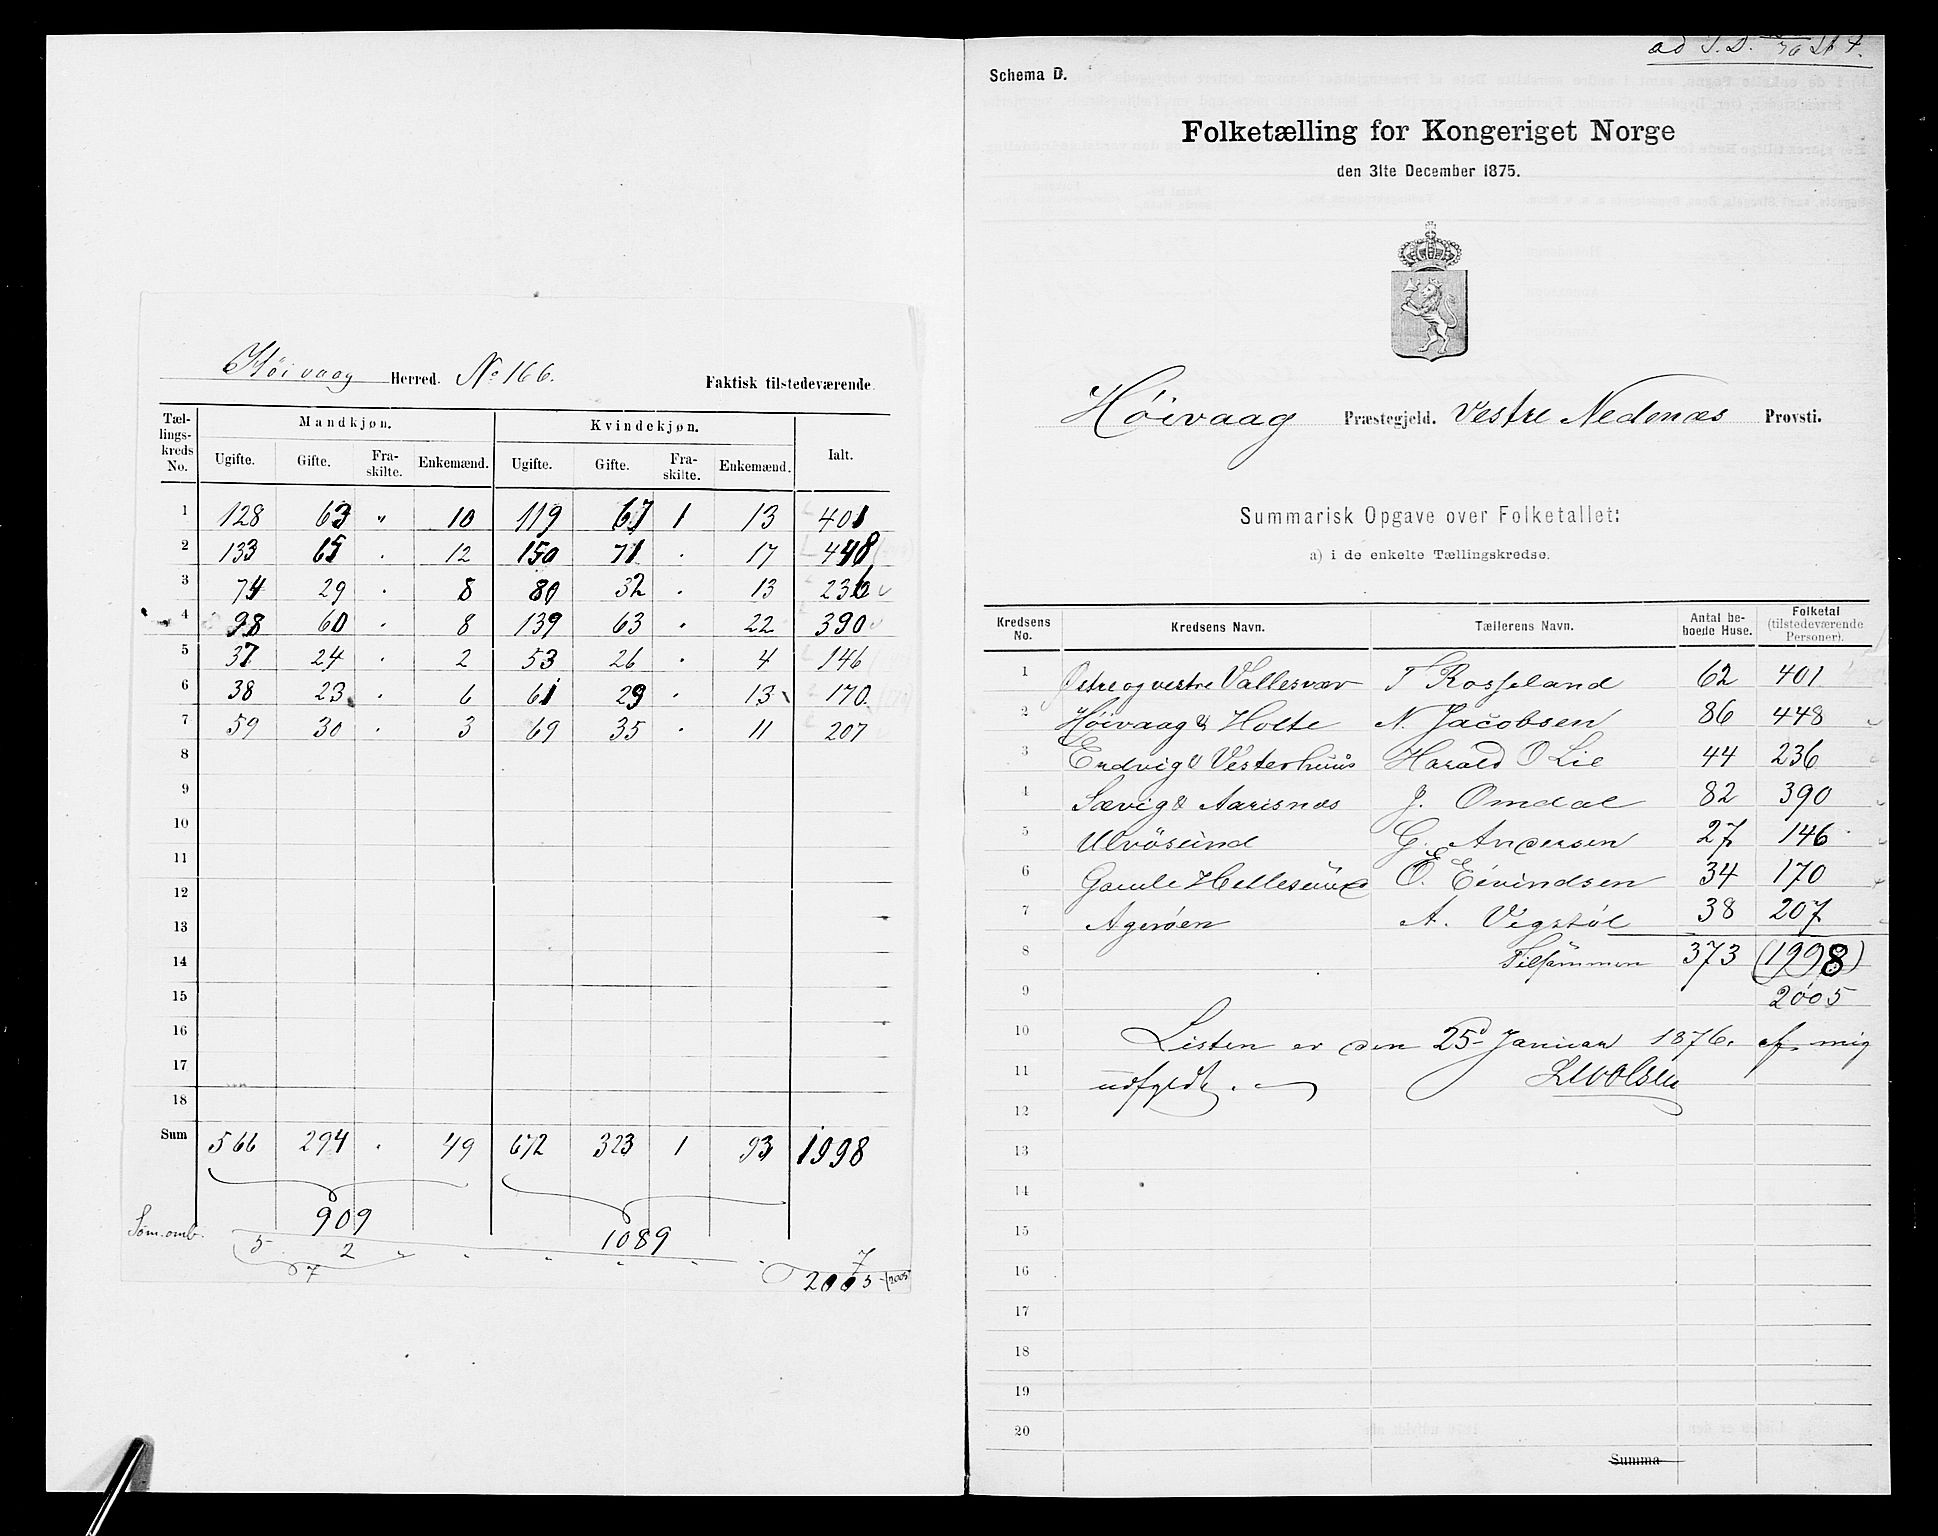 Høivaag Herred. No 166. Faktisk tilstedeværende.
Tællingskreds No. Mandkjøn. Kvindekjøn. Ialt.
Ugifte. Gifte. Fraskilte. Enkemænd. Ugifte. Gifte. Fraskilte. Enkemænd.
1 128 63 " 10 119 67 1 13 401
2 133 65 . 12 150 71 . 17 448
3 74 29 . 8 80 32 . 13 236
4 98 60 . 8 139 63 . 22 390
5 37 24 . 2 53 26 . 4 146
6 38 23 . 6 61 29 . 13 170
7 59 30 . 3 69 35 . 11 207
8
9
10
11
12
13
14
15
16
17
18
Sum 566 294 . 49 672 323 1 93 1998
909 1089
Søm.omb. 5 2 " " " " " 7
7 2005 (2005
ad S.D.
Schema D.
Folketælling for Kongeriget Norge
den 31te December 1875.
Høivaag Præstegjeld. Vestre Nedenæs Provsti.
Summarisk Opgave over Folketallet:
a) i de enkelte Tællingskredse.
Kredsens No. Kredsens Navn. Tællerens Navn. Antal beboede Huse. Folketal (tilstedeværende Personer).
1 Østre og vestre Vallesvær T Rosseland 62 401
2 Høivaag & Holte N. Jacobsen 86 448
3 Eudvig & Vesterhuus Harald O Lie 44 236
4 Sævig & Aarisnæs J. Omdal 82 390
5 Ulvøsund G. Andersen 27 146
6 Gamle Hellesund O. Eivindsen 34 170
7 Agerøen A. Vegstøl 38 207
8 Tilsammen 373 (1998)
9 2005
10 Listen er den 25d Januar 1876. af mig
11 udfyldt.
12
13
14
15
16
17
18
19
20
Summa